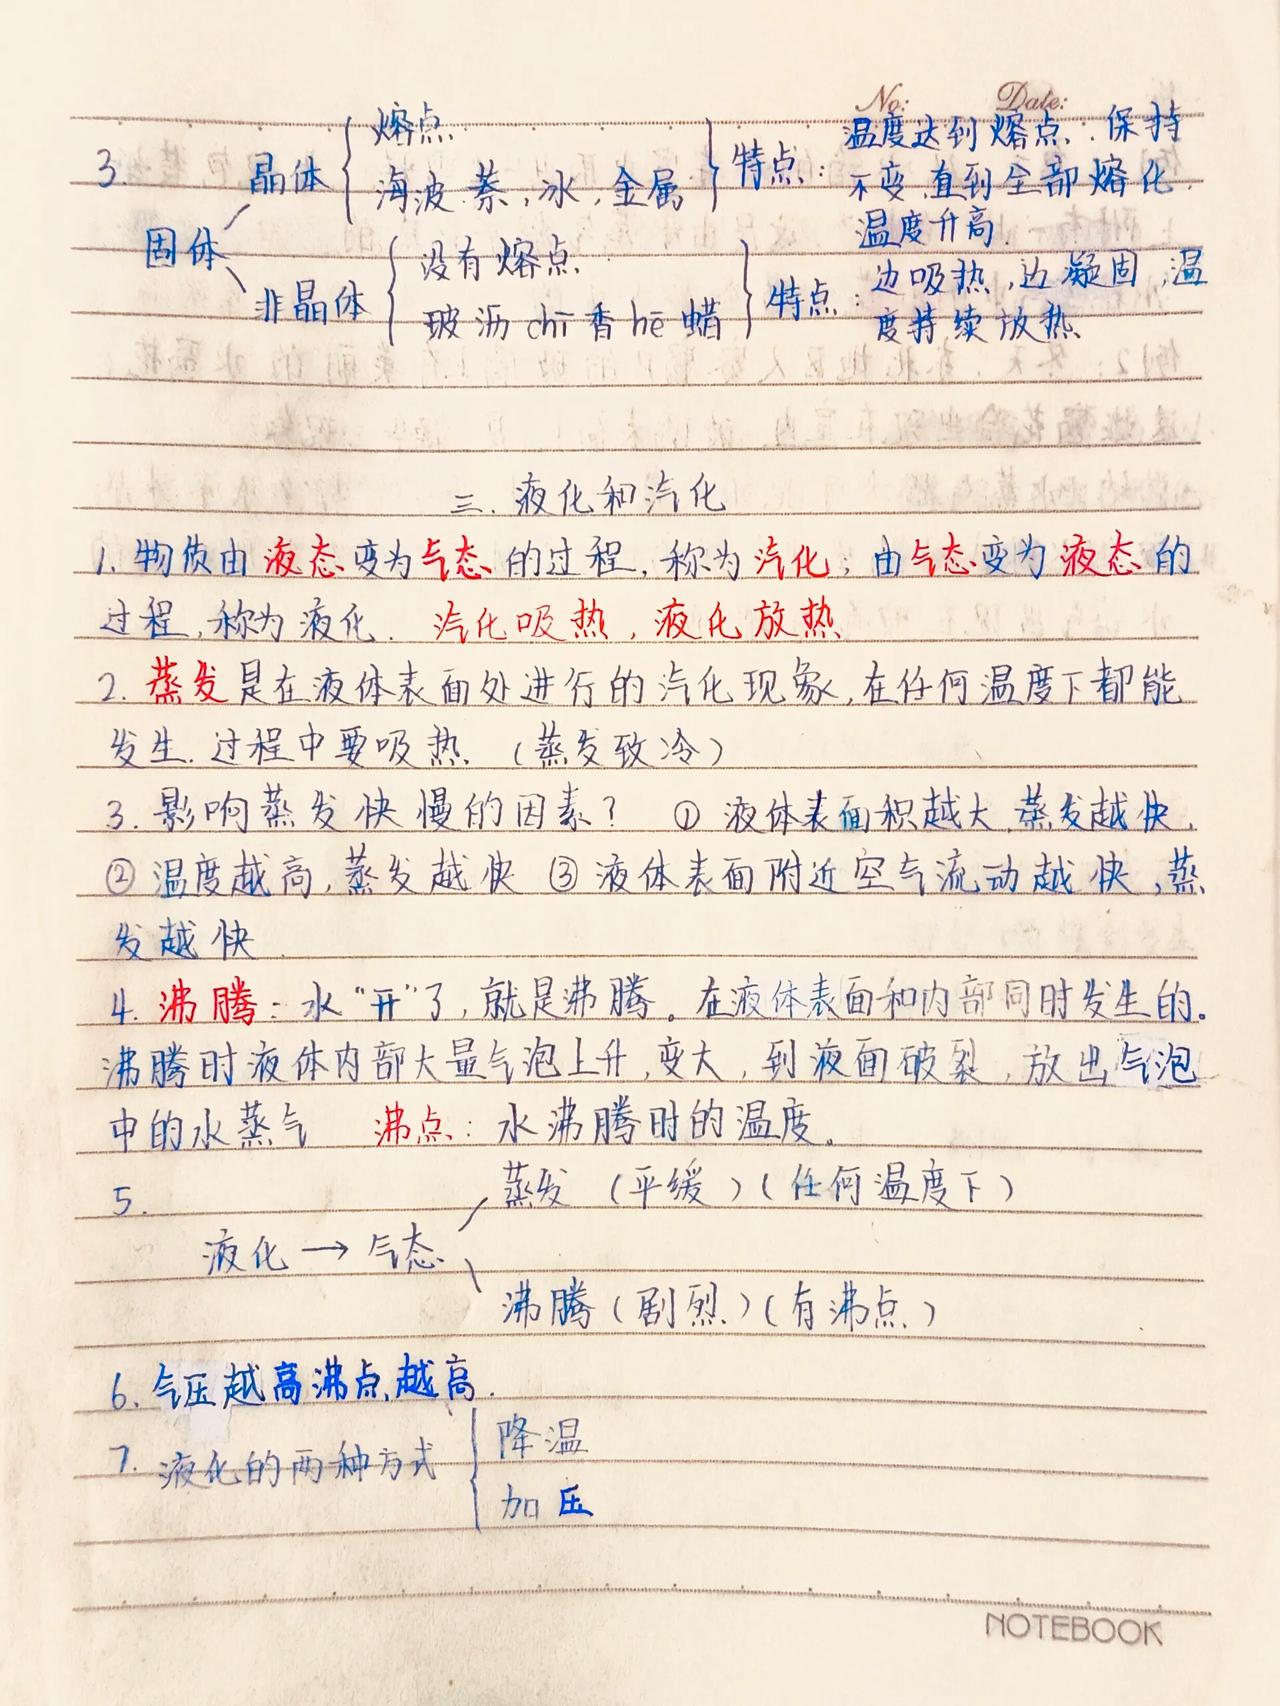 No: Date:
3. 晶体 熔点 特点: 温度达到熔点.保持
海波.萘,冰,金属 不变,直到全部熔化.
固体 温度升高.
非晶体 没有熔点 特点: 边吸热,边凝固,温
玻沥chī香hē蜡 度持续放热
三.液化和汽化
1.物质由液态变为气态的过程,称为汽化;由气态变为液态的
过程,称为液化. 汽化吸热,液化放热
2.蒸发是在液体表面处进行的汽化现象,在任何温度下都能
发生.过程中要吸热.(蒸发致冷)
3.影响蒸发快慢的因素? ①液体表面积越大,蒸发越快.
②温度越高,蒸发越快 ③液体表面附近空气流动越快,蒸
发越快.
4.沸腾:水“开”了,就是沸腾。在液体表面和内部同时发生的。
沸腾时液体内部大量气泡上升,变大,到液面破裂,放出气泡
中的水蒸气 沸点:水沸腾时的温度。
5. 蒸发(平缓)(任何温度下)
液化→气态
沸腾(剧烈)(有沸点)
6.气压越高沸点越高.
7.液化的两种方式 降温
加压
NOTEBOOK